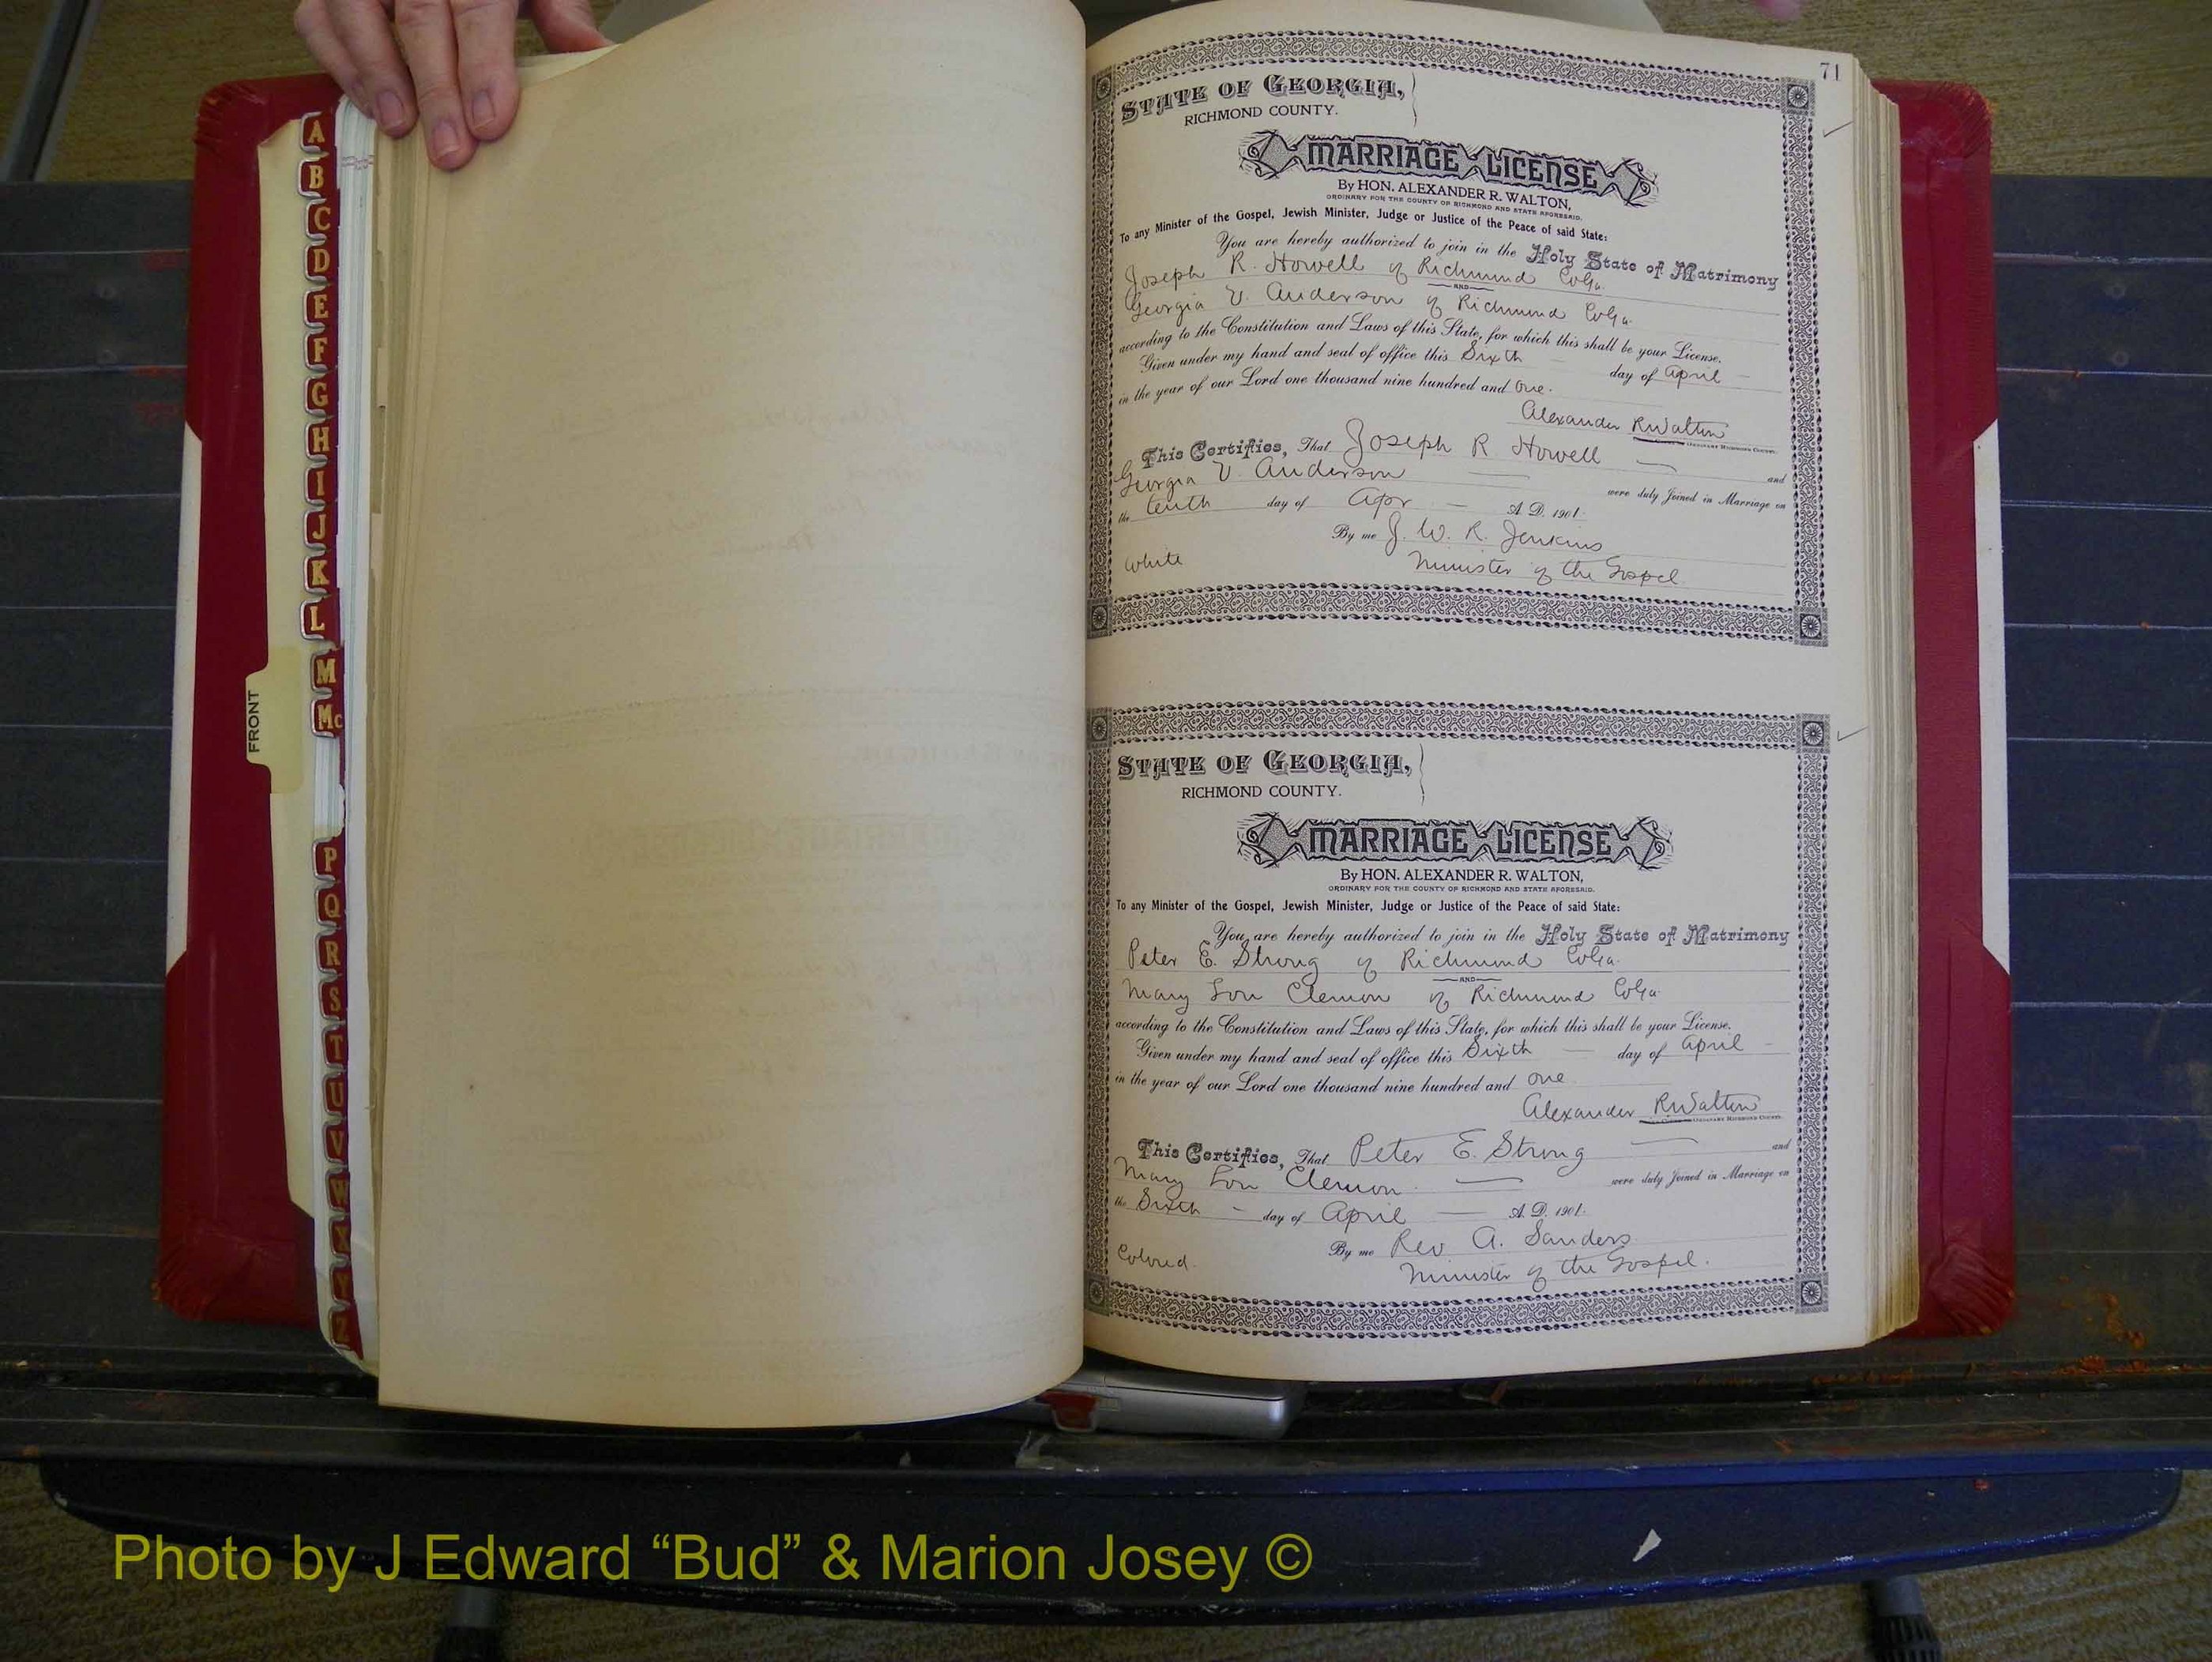 A
B
C
D
E
F
G
H
I
J
K
L
M
Mc
P
Q
R
S
T
U
V
W
X
Y
Z
FRONT
71
STATE OF GEORGIA,
RICHMOND COUNTY.
MARRIAGE LICENSE
By HON. ALEXANDER R. WALTON,
ORDINARY FOR THE COUNTY OF RICHMOND AND STATE AFORESAID.
To any Minister of the Gospel, Jewish Minister, Judge or Justice of the Peace of said State:
You are hereby authorized to join in the Holy State of Matrimony
Joseph R. Howell of Richmond Co Ga.
AND
Georgia V. Anderson of Richmond Co Ga.
according to the Constitution and Laws of this State, for which this shall be your License.
Given under my hand and seal of office this Sixth day of April
in the year of our Lord one thousand nine hundred and one.
Alexander R Walton
ORDINARY RICHMOND COUNTY.
This Certifies, That Joseph R Howell and
Georgia V Anderson were duly Joined in Marriage on
the tenth day of Apr A. D. 1901.
By me J. W. R. Jenkins
White Minister of the Gospel
STATE OF GEORGIA,
RICHMOND COUNTY.
MARRIAGE LICENSE
By HON. ALEXANDER R. WALTON,
ORDINARY FOR THE COUNTY OF RICHMOND AND STATE AFORESAID.
To any Minister of the Gospel, Jewish Minister, Judge or Justice of the Peace of said State:
You are hereby authorized to join in the Holy State of Matrimony
Peter E. Strong of Richmond Co Ga.
AND
Mary Lou Clemon of Richmond Co Ga
according to the Constitution and Laws of this State, for which this shall be your License.
Given under my hand and seal of office this Sixth day of April
in the year of our Lord one thousand nine hundred and one
Alexander R Walton
ORDINARY RICHMOND COUNTY.
This Certifies, That Peter E. Strong and
Mary Lou Clemon. were duly Joined in Marriage on
the Sixth day of April A. D. 1901.
By me Rev A. Sanders
Colored. Minister of the Gospel.
Photo by J Edward “Bud” & Marion Josey ©